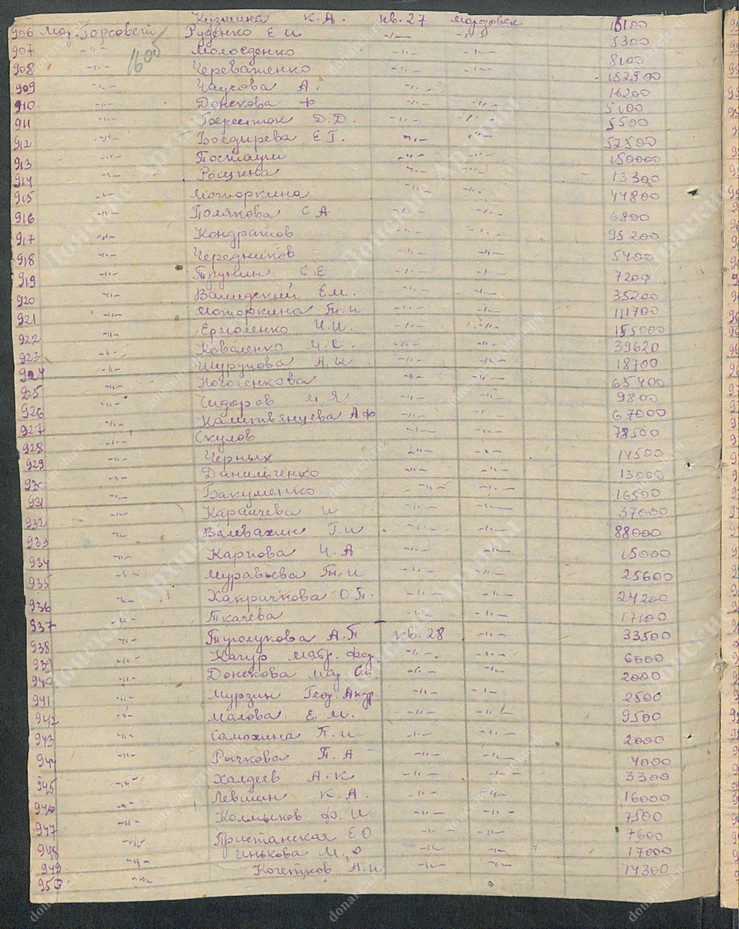 Кузьмина К.А. кв. 27 морозовск 18100
906 Моз. Горсовет Руденко Е И -"- -"- 5300
907 -"- Молоеденко -"- -"- 8100
908 -"- Череватенко -"- -"- 152500
909 -"- Чаусова А. -"- 16200
910 -"- Донскова Ф -"- -"- 5100
911 -"- Берестюк Д.Д. -"- -"- 5500
912 -"- Бондырева Е Г. -"- -"- 52500
913 -"- -"- -"- 150000
914 -"- Рощина -"- -"- 13300
915 -"- Моторкина -"- -"- 44800
916 -"- Полякова С А -"- -"- 6800
917 -"- Кондратов -"- -"- 95200
918 -"- Чередников -"- -"- 5400
919 -"- Трунин С Е -"- -"- 7200
920 -"- Валидский Е.М. -"- -"- 35200
921 -"- Моторкина Т. И -"- -"- 111700
922 -"- Ермоленко И.И. -"- -"- 155000
923 -"- Коваленко И.Е. -"- -"- 39620
924 -"- Шурупова А.И -"- -"- 18700
925 -"- -"- -"- 65400
926 -"- Сидоров И Я -"- -"- 9800
927 -"- Калитвянцева А Ф -"- -"- 67000
928 -"- Скулов -"- -"- 78500
929 -"- Черных -"- -"- 14500
930 -"- Данильченко -"- -"- 13000
931 -"- Бакуменко -"- -"- 16500
932 -"- Карачева И -"- -"- 37000
933 -"- Валевахин Г И -"- -"- 88000
934 -"- Карпова И. А -"- -"- 15000
935 -"- Муравьева Т. И -"- -"- 25600
936 -"- О П. -"- -"- 24200
937 -"- Ткачева -"- -"- 17100
938 -"- Туголукова А.П кв. 28 -"- 33500
939 -"- Качур Матр. Фед -"- -"- 6000
940 -"- Донскова Мар. -"- -"- 2000
941 -"- Мурзин Геор Андр -"- -"- 2500
942 -"- Малова Е. М. -"- -"- 9500
943 -"- Самохина П. И -"- -"- 2000
944 -"- Рычкова П. А -"- -"- 4000
945 -"- Халдеев А. К -"- -"- 3300
946 -"- Левшин К. А. -"- -"- 16000
947 -"- Колычков Ф. И -"- -"- 7500
948 -"- Пристанская Е О -"- -"- 7600
949 -"- Инькова М. О -"- -"- 17000
950 -"- Кочетков А. И -"- -"- 14300
1605